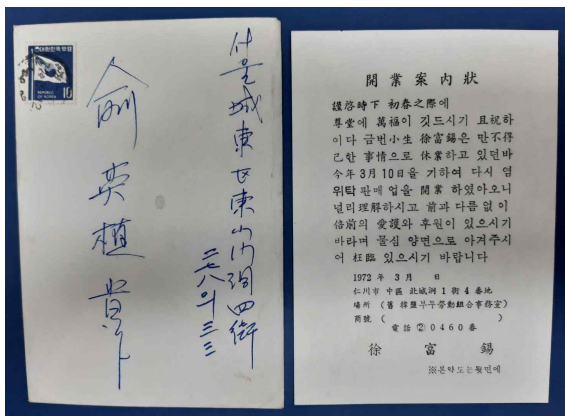 대한민국우표
REPUBLIC OF KOREA
10
서울城東区東山洞四街
二七八의三三
俞英植 貴下
開業案內狀
謹啓時下 初春之際에
尊堂에 萬福이 깃드시기 且祝하
이다 금번小生 徐富錫은 만不得
已한 事情으로 休業하고 있던바
今年3月10日을 기하여 다시 염
위탁 판매 업을 開業 하였아오니
널리理解하시고 前과 다름 없이
倍前의 愛護와 후원이 있으시기
바라며 물심 양면으로 아껴주시
어 枉臨 있으시기 바랍니다
1972 年 3 月 日
仁川市 中區 北城洞 1 街 4 番地
場所 (舊 韓鹽부두勞動組合事務室)
商號 ( )
電話 ② 0460 番
徐 富 錫
※본약도는뒷면에